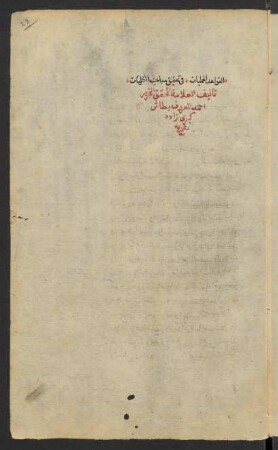 القواعد الجليات في تحقيق مباحث الكليات
تأليف العلامة المحقق النحرير
احمد المعروف بطاش
كبرى زاده